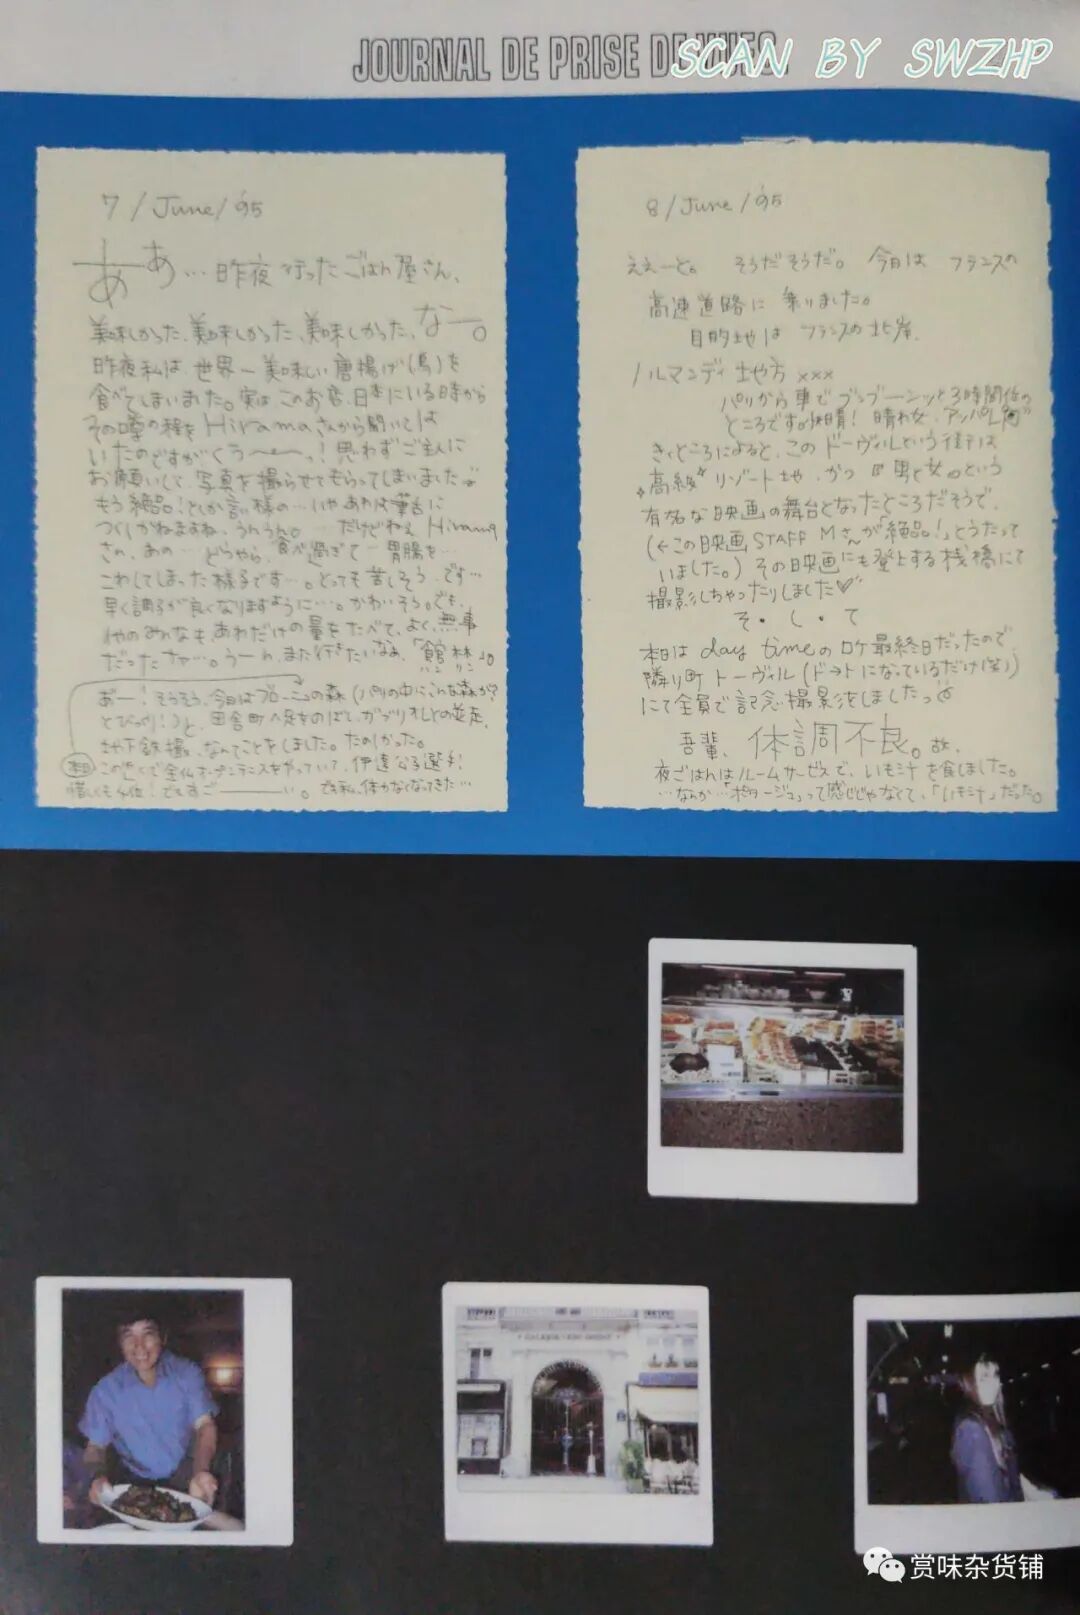 JOURNAL DE PRISE DE VUES.
SCAN BY SWZHP
7/June/'95
ああ…昨夜行ったごはん屋さん、
美味しかった、美味しかった、美味しかった、なー。
昨夜私は、世界一美味しい唐揚げ(鳥)を
食べてしまいました。実はこのお店、日本にいる時から
その噂の程をHiramaさんから聞いては
いたのですがくぅ〜〜っ!思わずご主人に
お願いして、写真を撮らせてもらってしまいました
もう絶品!とか言い様の…いやあれは筆舌に
つくしがたいですね、うんうん。…だけどねぇHirama
さん、あの…どうやら、食べ過ぎて…胃腸を…
こわしてしまった様子です…。とっても苦しそうです…
早く調子が良くなりますように…。かわいそう。でも、
他のみんなも、あれだけの量をたべて、よく無事
だったナァ…。うーん、また行きたいなぁ、「館林」の
あー!そうそう、今日はブローニュの森(パリの中にこんな森が?
とびっくり!)と、田舎町へ足をのばして、ガブリオレとの並走、
地下鉄撮、なんてことをしました。たのしかった。
この近くで全仏オープンテニスをやっていて、伊達公子選手!
惜しくも4位!ですごーい。でも私、体がなくなってきた…
8/June/'95
ええーと。そうだそうだ。今日はフランスの
高速道路に乗りました。
目的地はフランスの北岸、
ノルマンディ地方×××
パリから車でブッブーンッと3時間位の
ところです。快晴!晴れ女、アッパレ
きくところによると、このドーヴィルという街は
高級リゾート地、かつ『男と女』という
有名な映画の舞台となったところだそうで、
(←この映画STAFF Mさんが絶品!とうたって
いました。)その映画にも登上する桟橋にて
撮影しちゃったりしました♡
そ・し・て
本日はday timeのロケ最終日だったので、
隣り町トーヴィル(ド→トになっているだけ(笑))
にて全員で記念撮影をしましたっ
吾輩、体調不良。故、
夜ごはんはルームサービスで、いも汁を食しました。
…なんか…「ポタージュ」って感じじゃなくて、「いも汁」だった。
赏味杂货铺